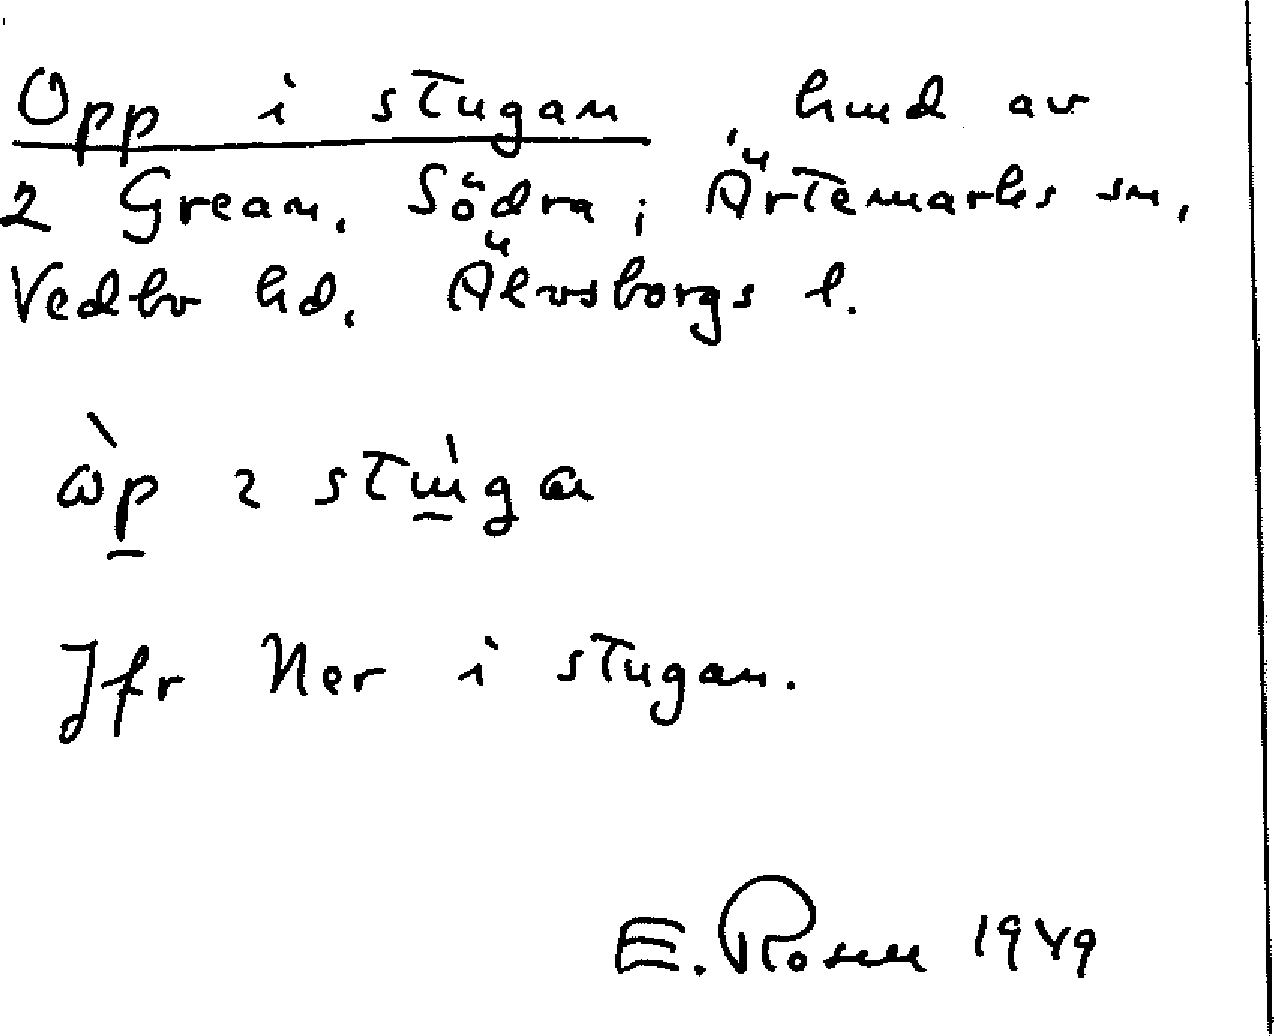 Opp i stugan hmd av
2 Grean, Södra; Ärtemarks sn,
Vedbo hd, Älvsborgs l.
i
Jfr Ner i stugan.
E. Rosell 1949